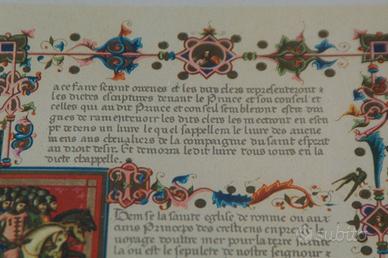 a ce faire seront ordenes et les dits clers representeront
les dictes escriptures devant le Prince et son conseil et
celles qui au dit Prince et conseil sembleront estre dignes
de ramentevoir les dits clers les mectront en escript
dedens un livre le quel s'appellera le livre des avenemens
aus chevaliers de la compaignie du saint esprit
au droit desir. Et demorra le dit livre tous jours en la
dicte chappelle.
Item se la sainte eglise de romme ou aucuns
Princeps des crestiens en preist
voyage d'outre mer pour la terre sainte
la ou est le sepulcre de nostre seigneur
subito